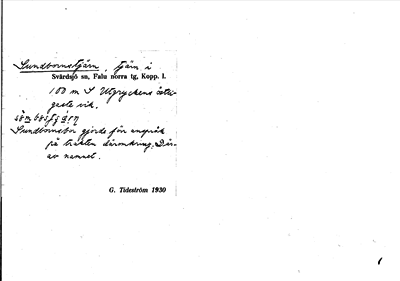 Sundbornstjärn, tjärn i
Svärdsjö sn, Falu norra tg, Kopp. l.
100 m S Utgryckens östli-
gaste vik.
Sundbornsbor gjorde för anspråk
på trakten däromkring. Där-
av namnet.
G. Tideström 1930